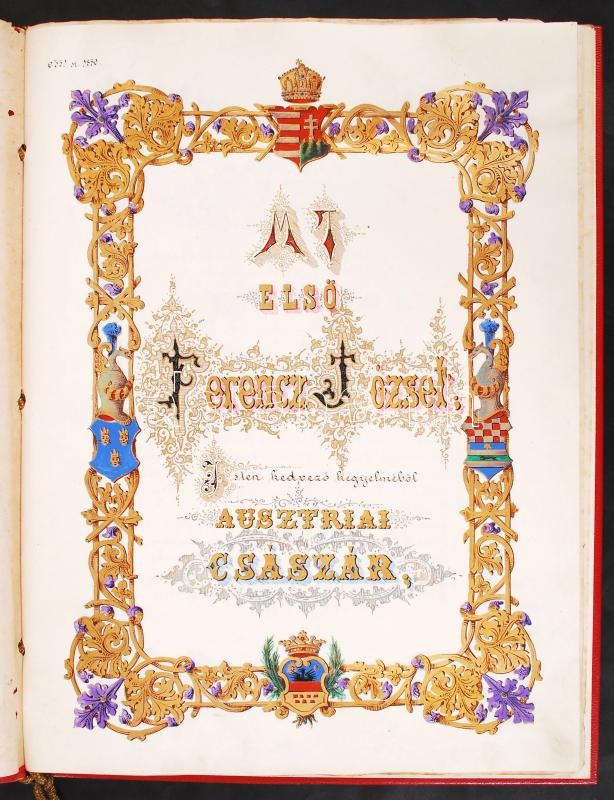 MI
ELSŐ
Ferencz József.
Isten kedvező kegyelméből
AUSZTRIAI
CSÁSZÁR,